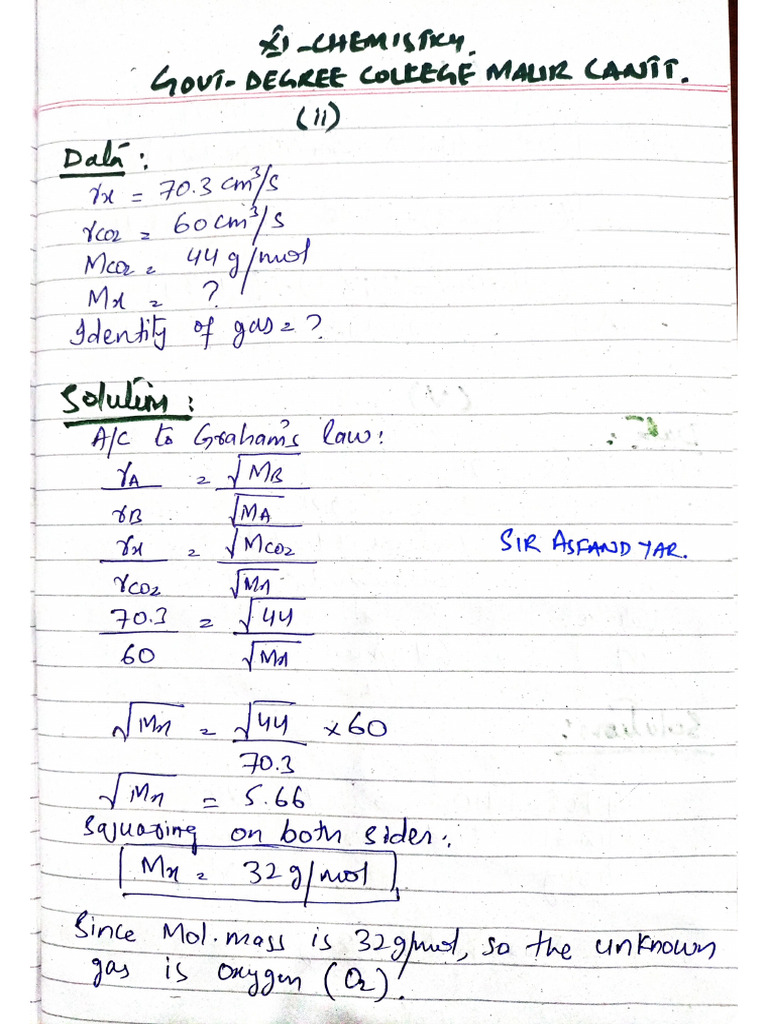 XI-CHEMISTRY.
GOVT-DEGREE COLLEGE MALIR CANTT.
(ii)
Data:
rx = 70.3 cm³/s
rCO2 = 60 cm³/s
MCO2 = 44 g/mol
Mx = ?
Identity of gas = ?
Solution:
A/C to Graham's law:
rA = √MB
rB √MA
rx = √MCO2
rCO2 √Mx
SIR ASFAND YAR.
70.3 = √44
60 √Mx
√Mx = √44 × 60
70.3
√Mx = 5.66
Sqjuaring on both sides:
Mx = 32 g/mol
Since Mol. mass is 32g/mol, so the unknown
gas is oxygen (O2).